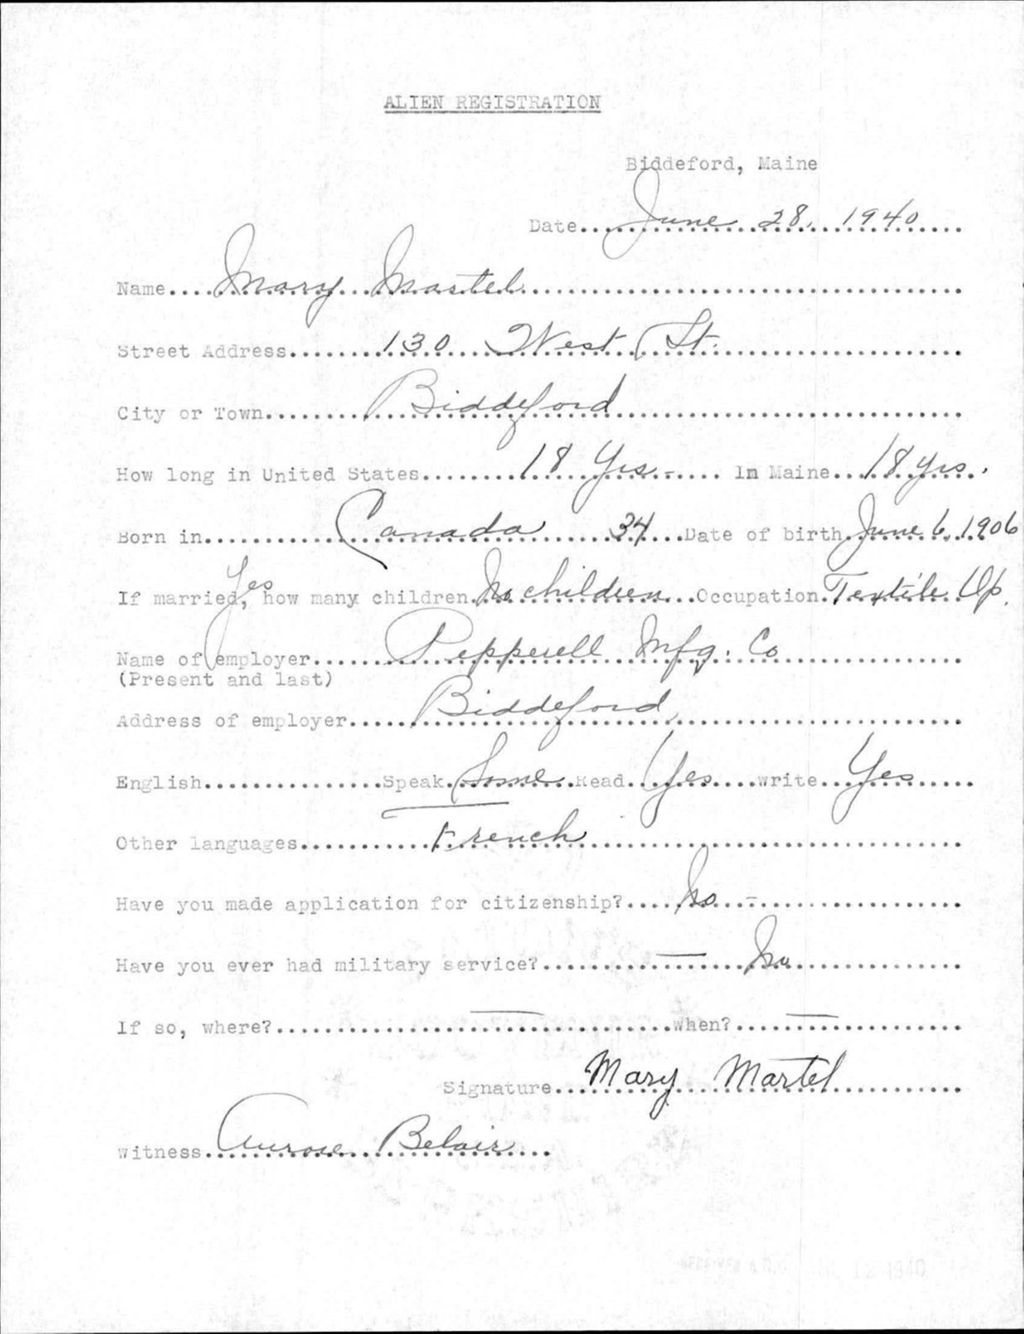 ALIEN REGISTRATION
Biddeford, Maine
Date June 28, 1940
Name Mary Martel
Street Address 130 West St.
City or Town Biddeford
How long in United States 18 Yrs. In Maine 18 yrs.
Born in Canada 34 Date of birth June 6, 1906
Yes
If married, how many children No children Occupation Textile Op.
Name of employer Pepperell Mfg. Co
(Present and last)
Address of employer Biddeford
English Speak Some Read Yes Write Yes
Other languages French
Have you made application for citizenship? No -
Have you ever had military service? — No
If so, where? — when? —
Signature Mary Martel
Witness Belair
RECEIVED A.G.O. 12 1940